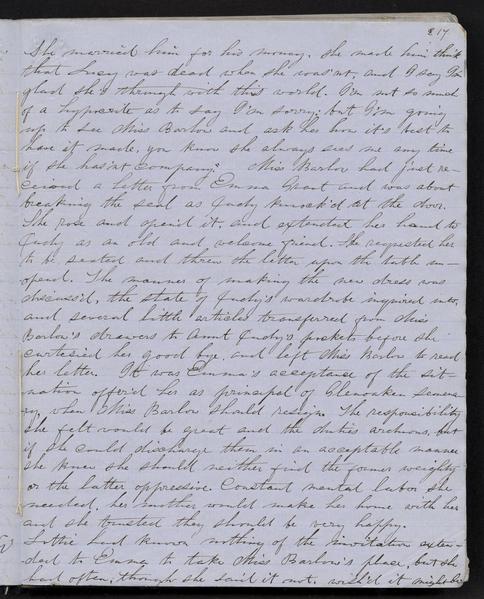 217
She married him for his money. She made him think
that Lucy was dead when she was'nt, and I say I'm
glad she's through with this world. I'm not so much
of a hypocrite as to say I'm sorry; but I'm going
up to see Miss Barlow and ask her how it's best to
have it made, you know she always sees me any time
if she has'nt company." Miss Barlow had just re-
ceived a letter from Emma Grant and was about
breaking the seal as Judy knock'd at the door.
She rose and open'd it, and extended her hand to
Judy as an old and welcome friend. She requested her
to be seated and threw the letter upon the table un-
opened. The manner of making the new dress was
discuss'd, the state of Judy's wardrobe inquired into,
and several little articles transferred from Miss
Barlow's drawers to Aunt Judy's pockets before she
curtesied her good bye, and left Miss Barlow to read
her letter. It was Emma's acceptance of the sit-
uation offer'd her as principal of Glenoaken semina-
ry, when Miss Barlow should resign. The responsibility
she felt would be great and the duties arduous, but
if she could discharge them in an acceptable manner
she knew she should neither find the former weighty
or the latter oppressive. Constant mental labor she
needed, her mother would make her home with her
and she trusted they should be very happy.
Lottie had known nothing of the invitation exten-
ded to Emma to take Miss Barlow's place, but she
had often, though she said it not, wish'd it might be